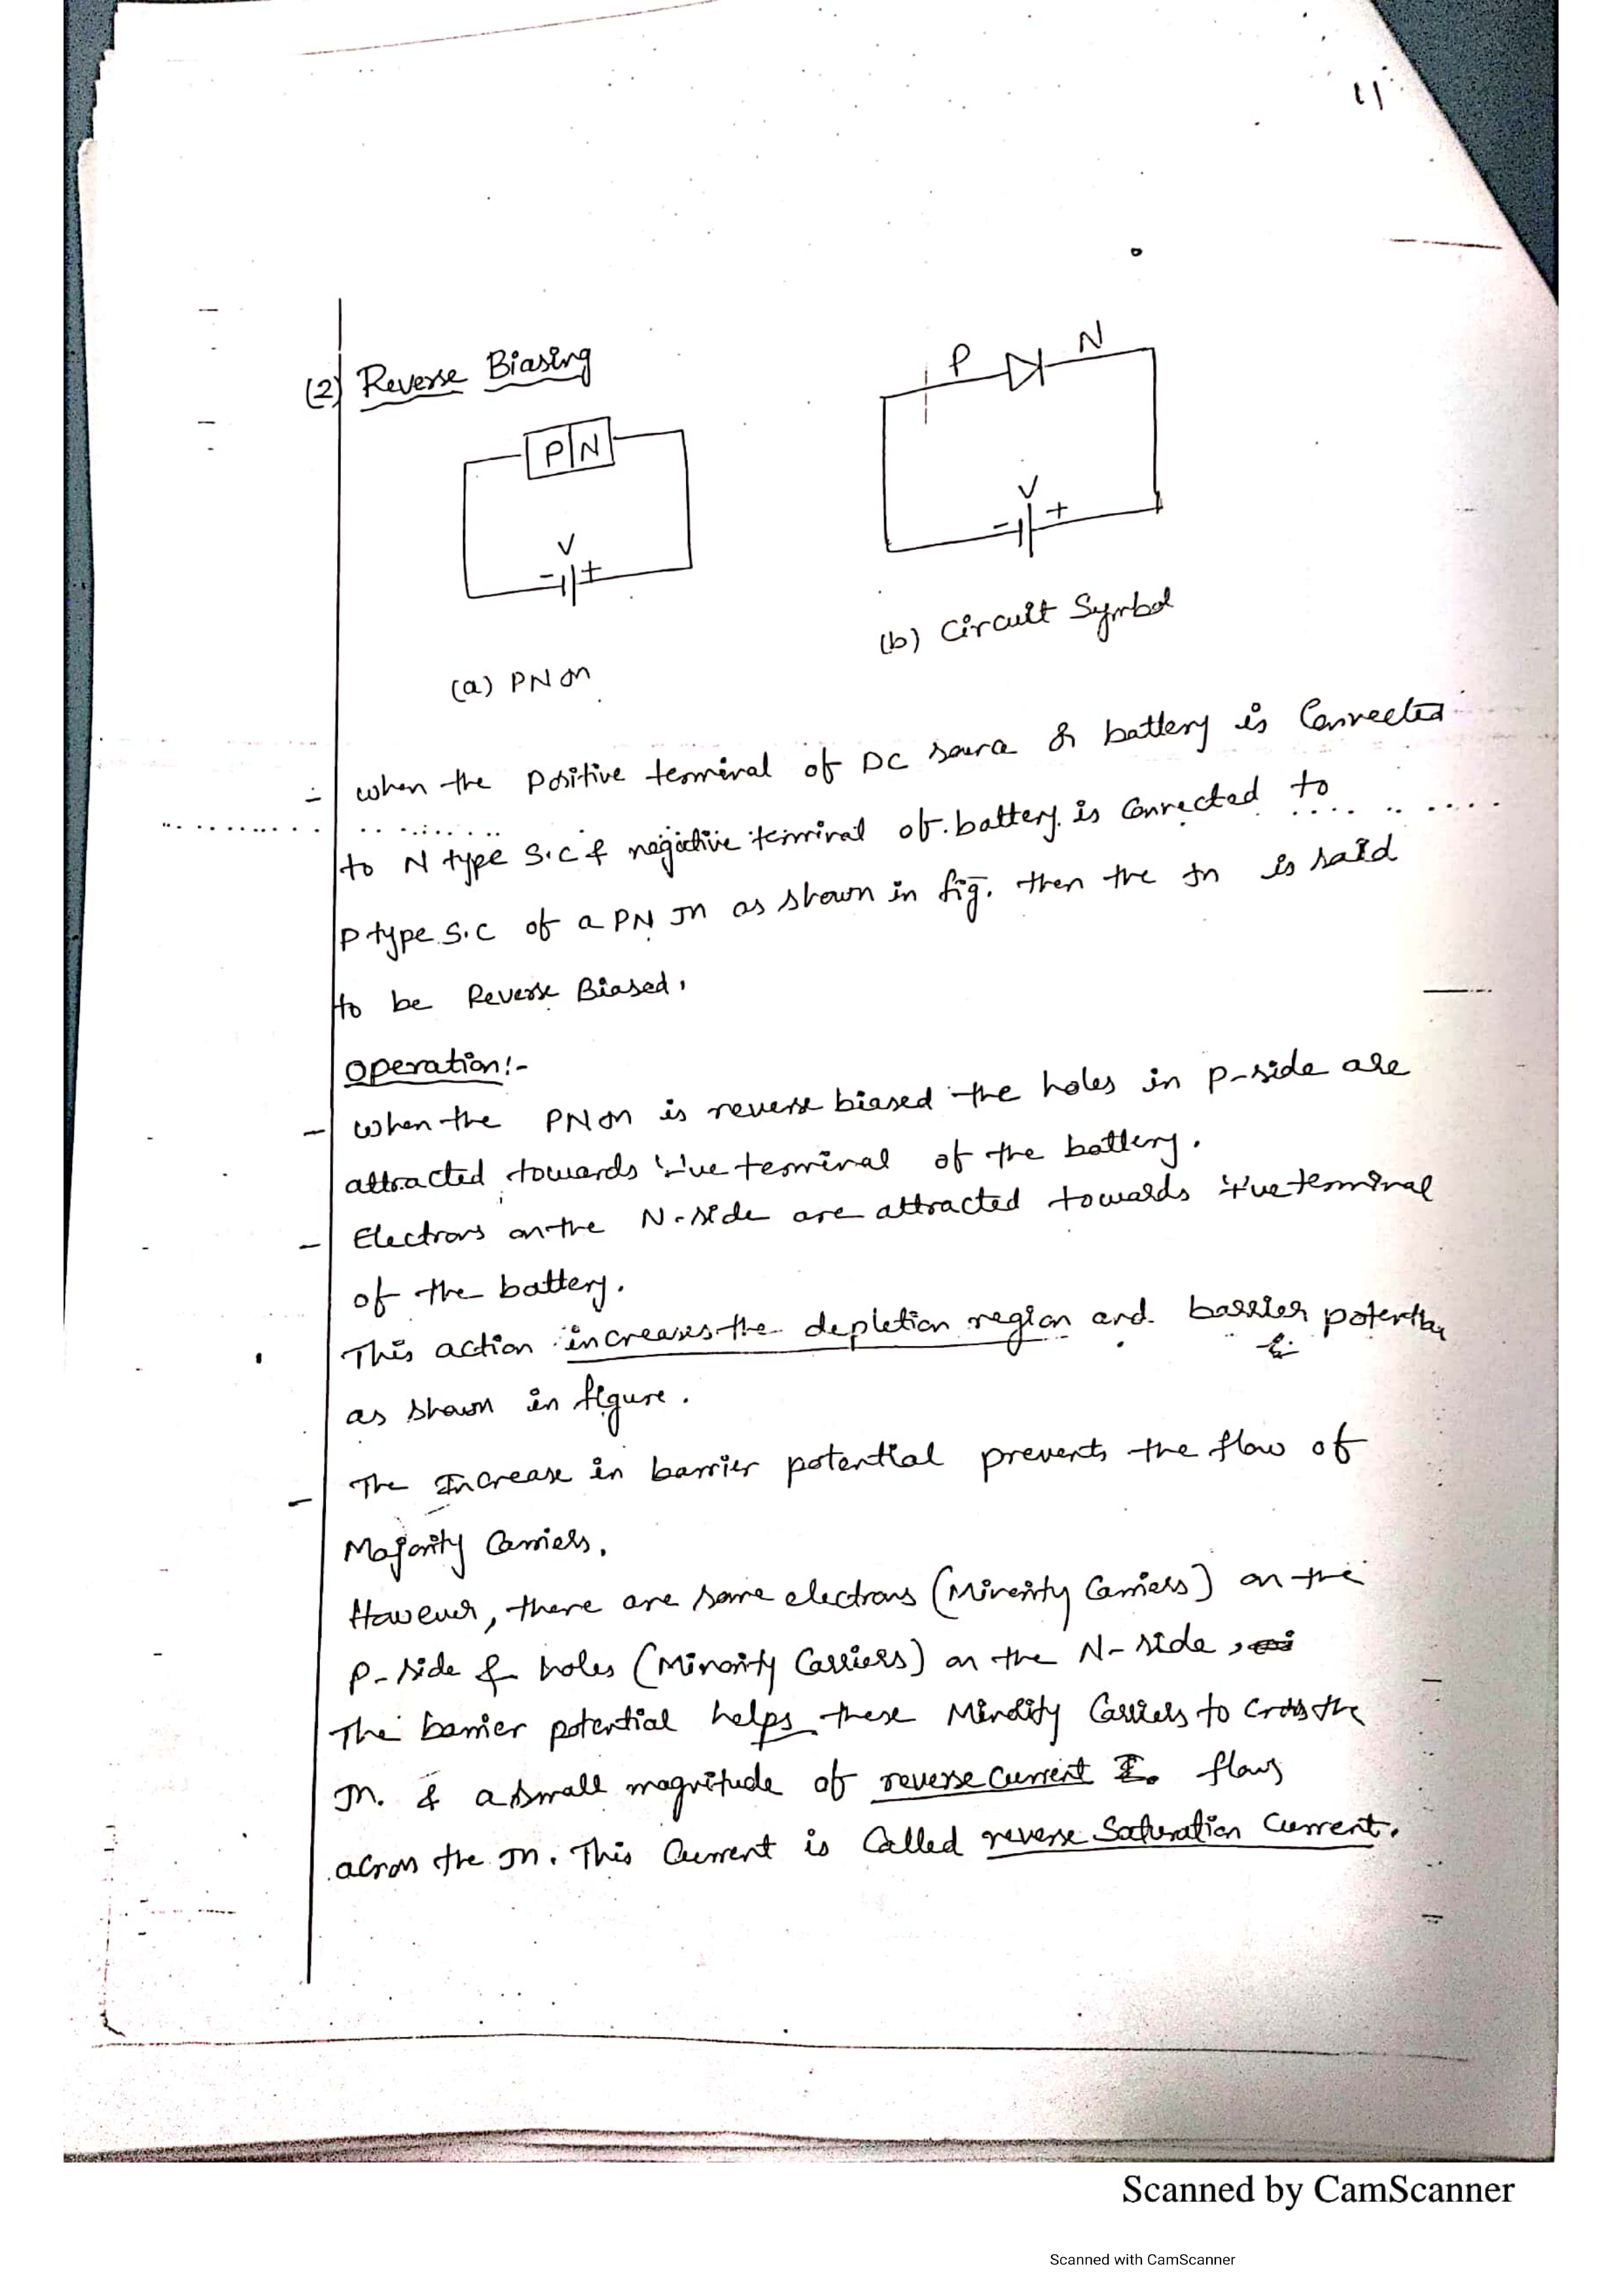 11
(2) Reverse Biasing
P N
V
- +
P N
V
- +
(b) Circuit Symbol
(a) PN Jn
- when the Positive terminal of DC source or battery is Connected
to N type S.C & negative terminal of battery is Connected to
P type S.C of a PN Jn as shown in fig. then the Jn is said
to be Reverse Biased.
Operation:-
- When the PN Jn is reverse biased the holes in P-side are
attracted towards '-'ve terminal of the battery.
- Electrons on the N-side are attracted towards '+'ve terminal
of the battery.
This action increases the depletion region and barrier potential
as shown in figure.
- The Increase in barrier potential prevents the flow of
Majority Carriers.
However, there are some electrons (Minority Carriers) on the
P-side & holes (Minority Carriers) on the N-side,
The barrier potential helps these Minority Carriers to Cross the
Jn. & a small magnitude of reverse current I₀ flows
across the Jn. This Current is Called reverse Saturation Current.
Scanned by CamScanner
Scanned with CamScanner